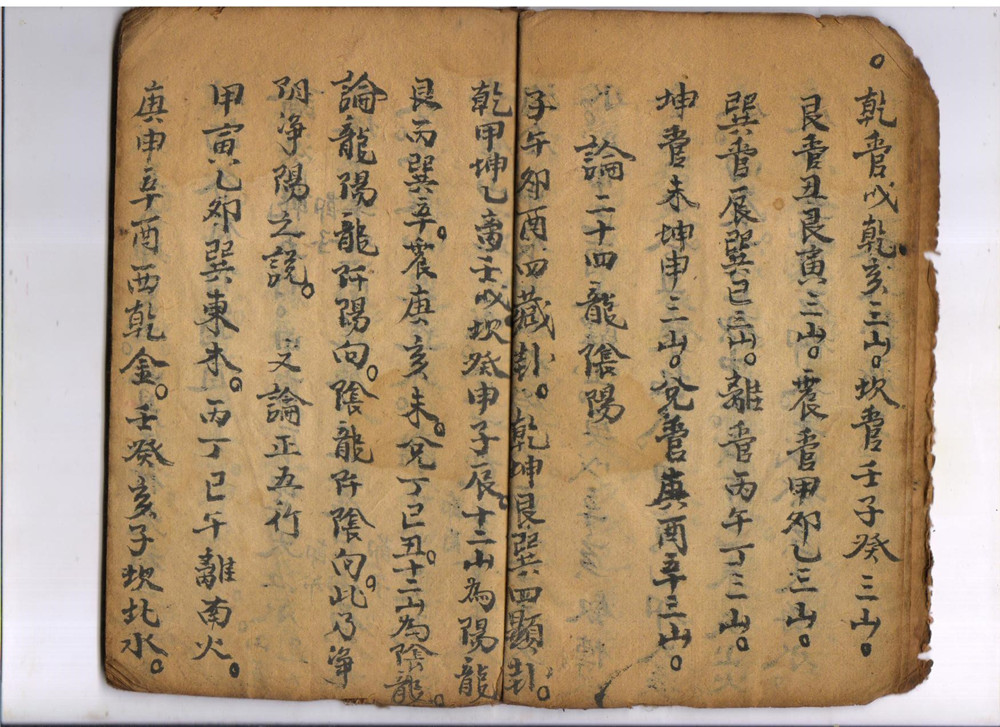 乾管戌乾亥三山。坎管壬子癸三山。
艮管丑艮寅三山。震管甲卯乙三山。
巽管辰巽巳三山。離管丙午丁三山。
坤管未坤申三山。兌管庚酉辛三山。
論二十四龍陰陽
子午卯酉四藏卦。乾坤艮巽四顯卦。
乾甲坤乙离壬戌坎癸申子辰。十二山為陽龍
艮丙巽辛。震庚亥未。兌丁巳丑。十二山為陰龍。
論龍陽龍阡陽向。陰龍阡陰向。此乃净
阴净陽之説。 又論正五行
甲寅乙卯巽東木。丙丁巳午離南火。
庚申辛酉西乾金。壬癸亥子坎北水。